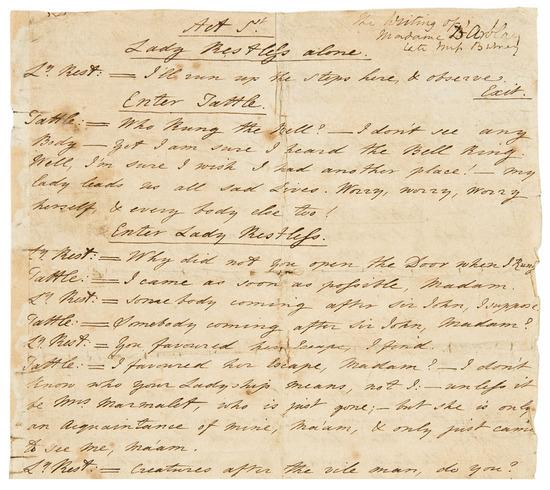 Act 5st
The Writing of
Madame D'Arblay
late Miss Burney
Lady Restless alone.
Ly. Rest: = I'll run up the steps here, & observe.
Exit.
Enter Tattle.
Tattle: = Who Rung the Bell? – I don't see any
Body – yet I am sure I heard the Bell Ring.
Well, I'm sure I wish I had another place! – my
lady leads us all sad Lives. Worry, worry, worry
herself, & every body else too!
Enter Lady Restless.
Ly. Rest: = Why did not you open the Door when I Rung
Tattle: = I came as soon as possible, Madam.
Ly. Rest: = Somebody coming after Sir John, I suppose
Tattle: = Somebody coming after Sir John, Madam?
Ly. Rest: = You favoured her Escape, I find.
Tattle: = I favoured her Escape, Madam? – I don't
know who your Ladyship means, not I: – unless it
be Mrs Marmalet, who is just gone; – but she is only
an Acquaintance of mine, Ma'am, & only just came
to see me, ma'am.
Ly. Rest: = Creatures after the vile man, do you?